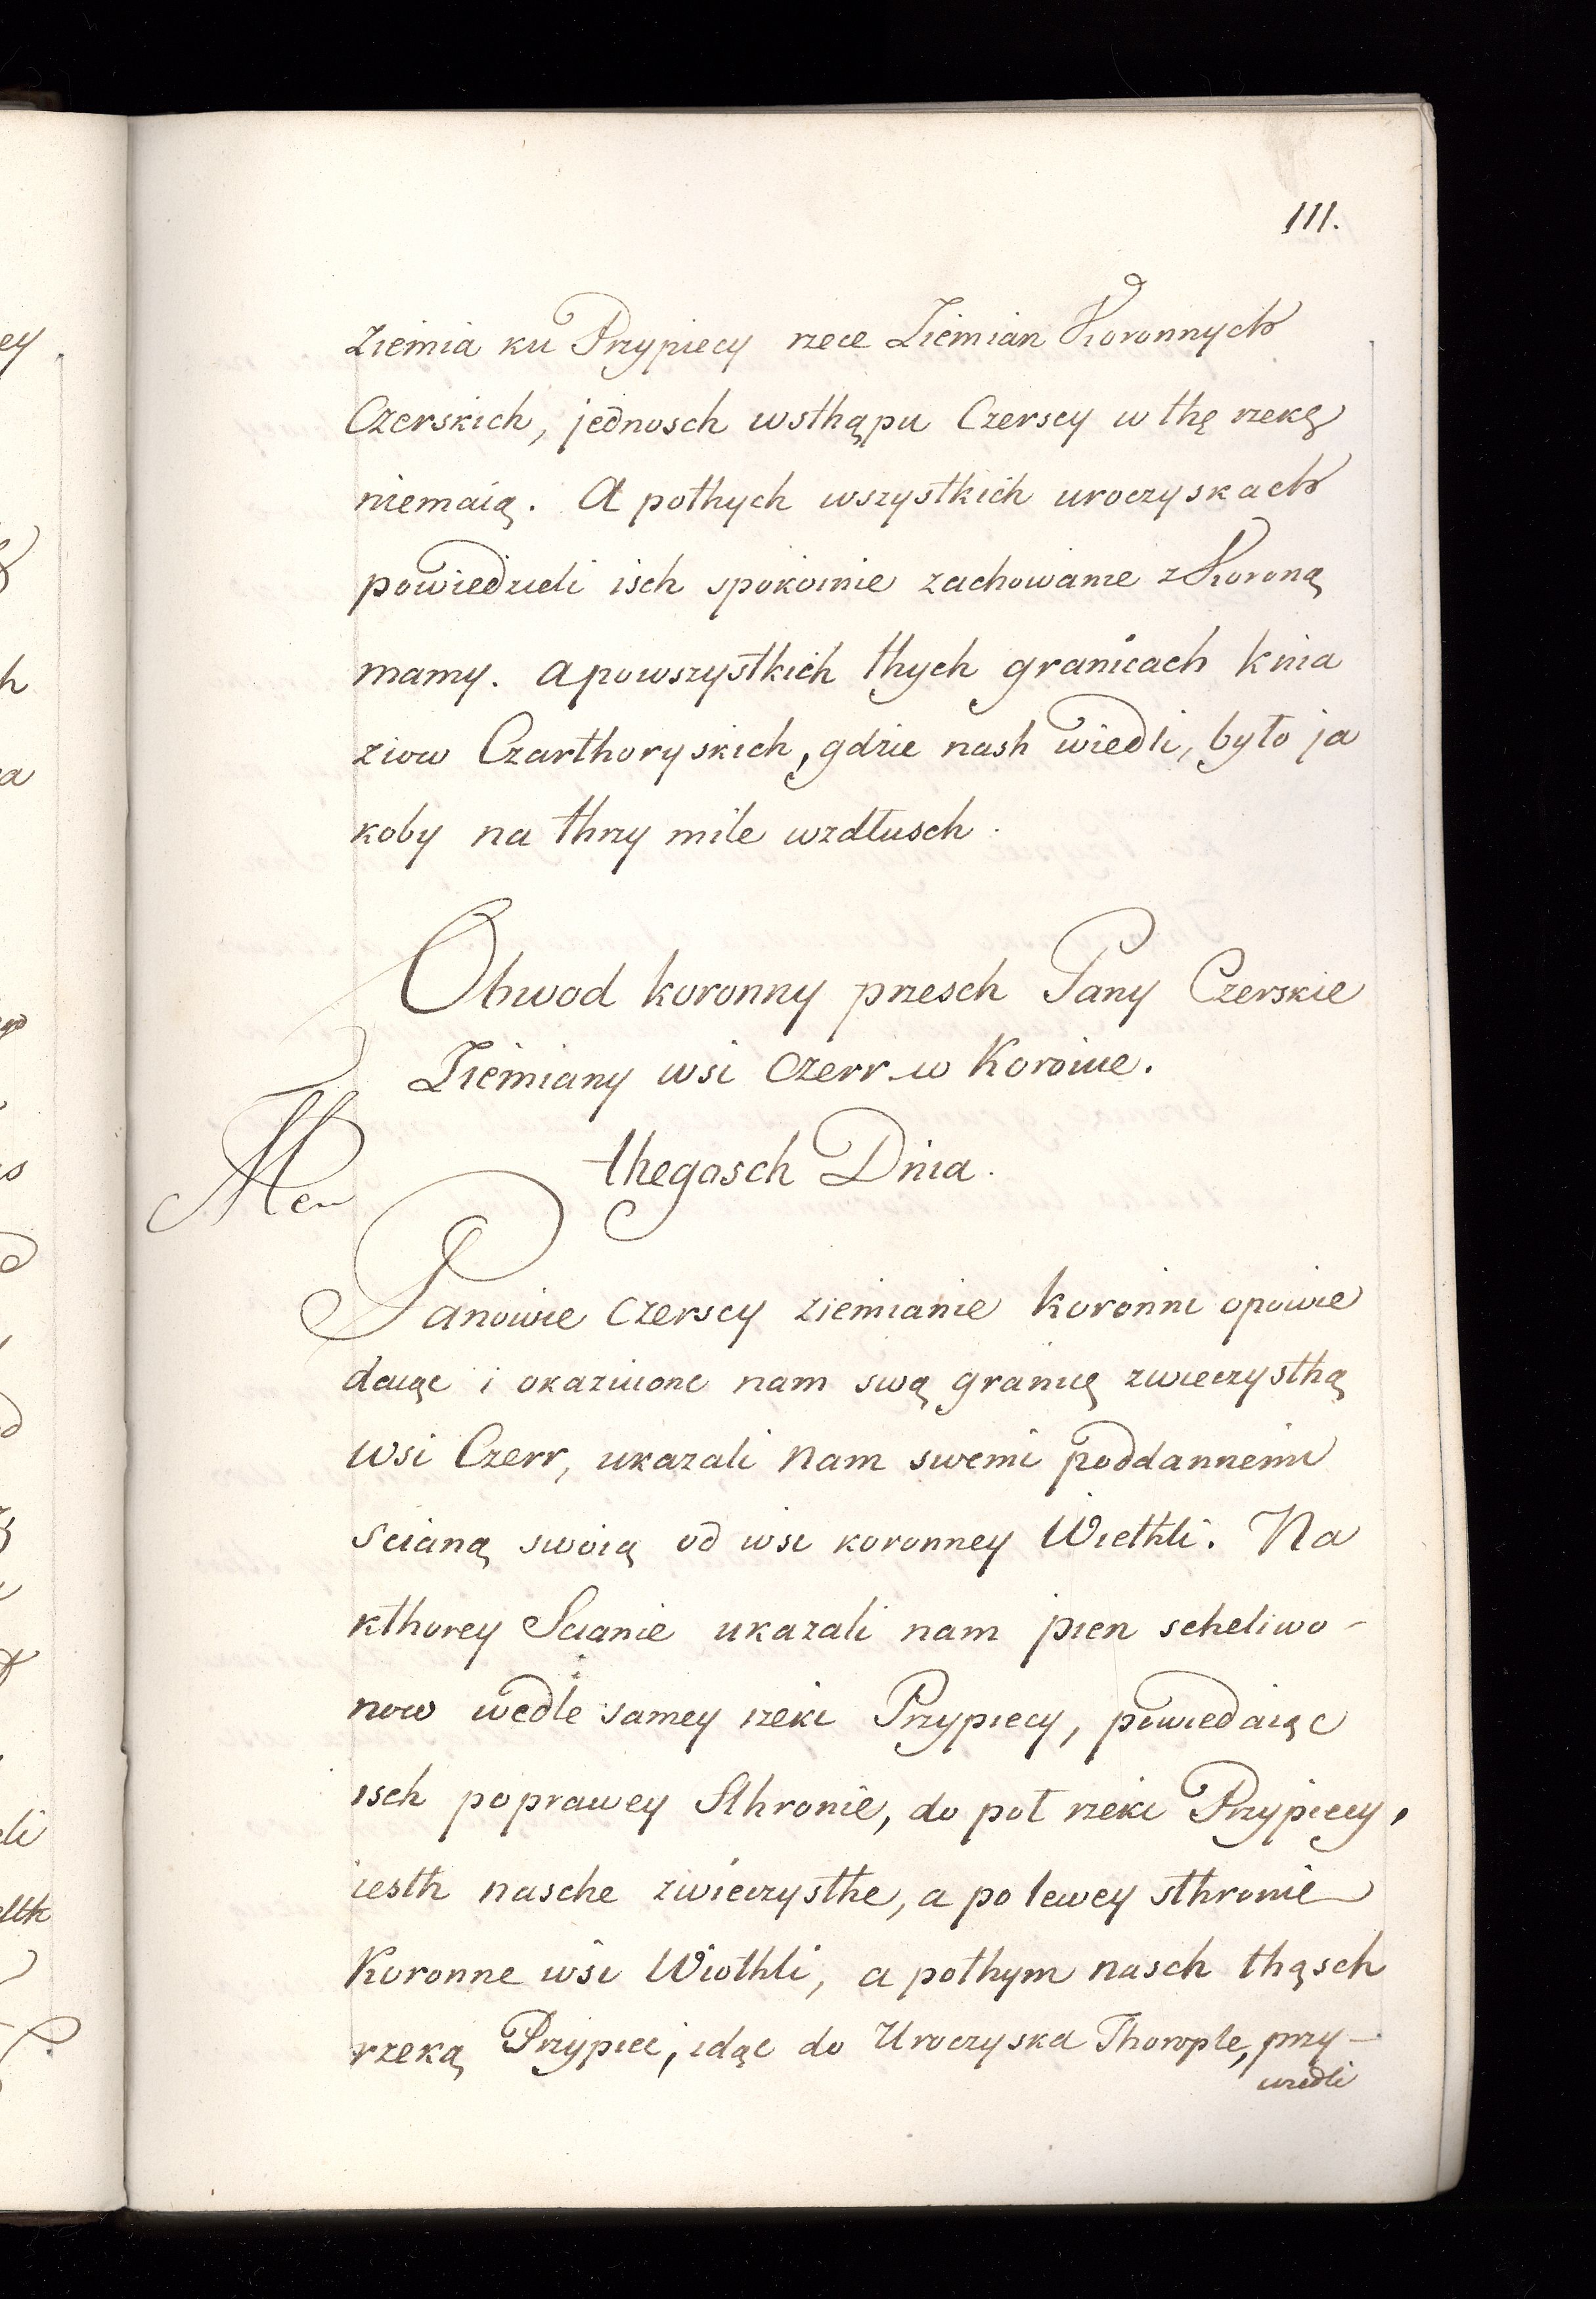 111.
ziemia ku Przypiecy rzece Ziemian Koronnych
Czerskich, jednosch wsthąpu Czerscy w thę rzekę
niemaią. A pothych wszystkich uroczyskach
powiedzieli isch spokoinie zachowanie z Koroną
mamy. apowszystkich thych granicach knia
ziow Czarthoryskich, gdzie nash wiedli, było ja
koby na thrzy mile wzdłusch.
Obwod koronny przesch Pany Czerskie
Ziemiany wsi Czerr w Koronie.
thegosch Dnia.
Panowie Czerscy ziemianie koronni opowie
daiąc i okaziuionc nam swą granicę zwieczysthą
wsi Czerr, ukazali nam swemi poddannemi
scianą swoią od wsi koronney Wiethli. Na
kthorey Scianie ukazali nam pien scheliwo-
now wedle samey rzeki Przypiecy, powiedaiąc
isch poprawey Sthronie, do poł rzeki Przypiecy,
iesth nasche zwieczysthe, a po lewey sthronie
Koronne wsi Wiothli, a pothym nasch thąsch
rzeką Przypieć, idąc do Uroczyska Thorople, przy-
wiedli